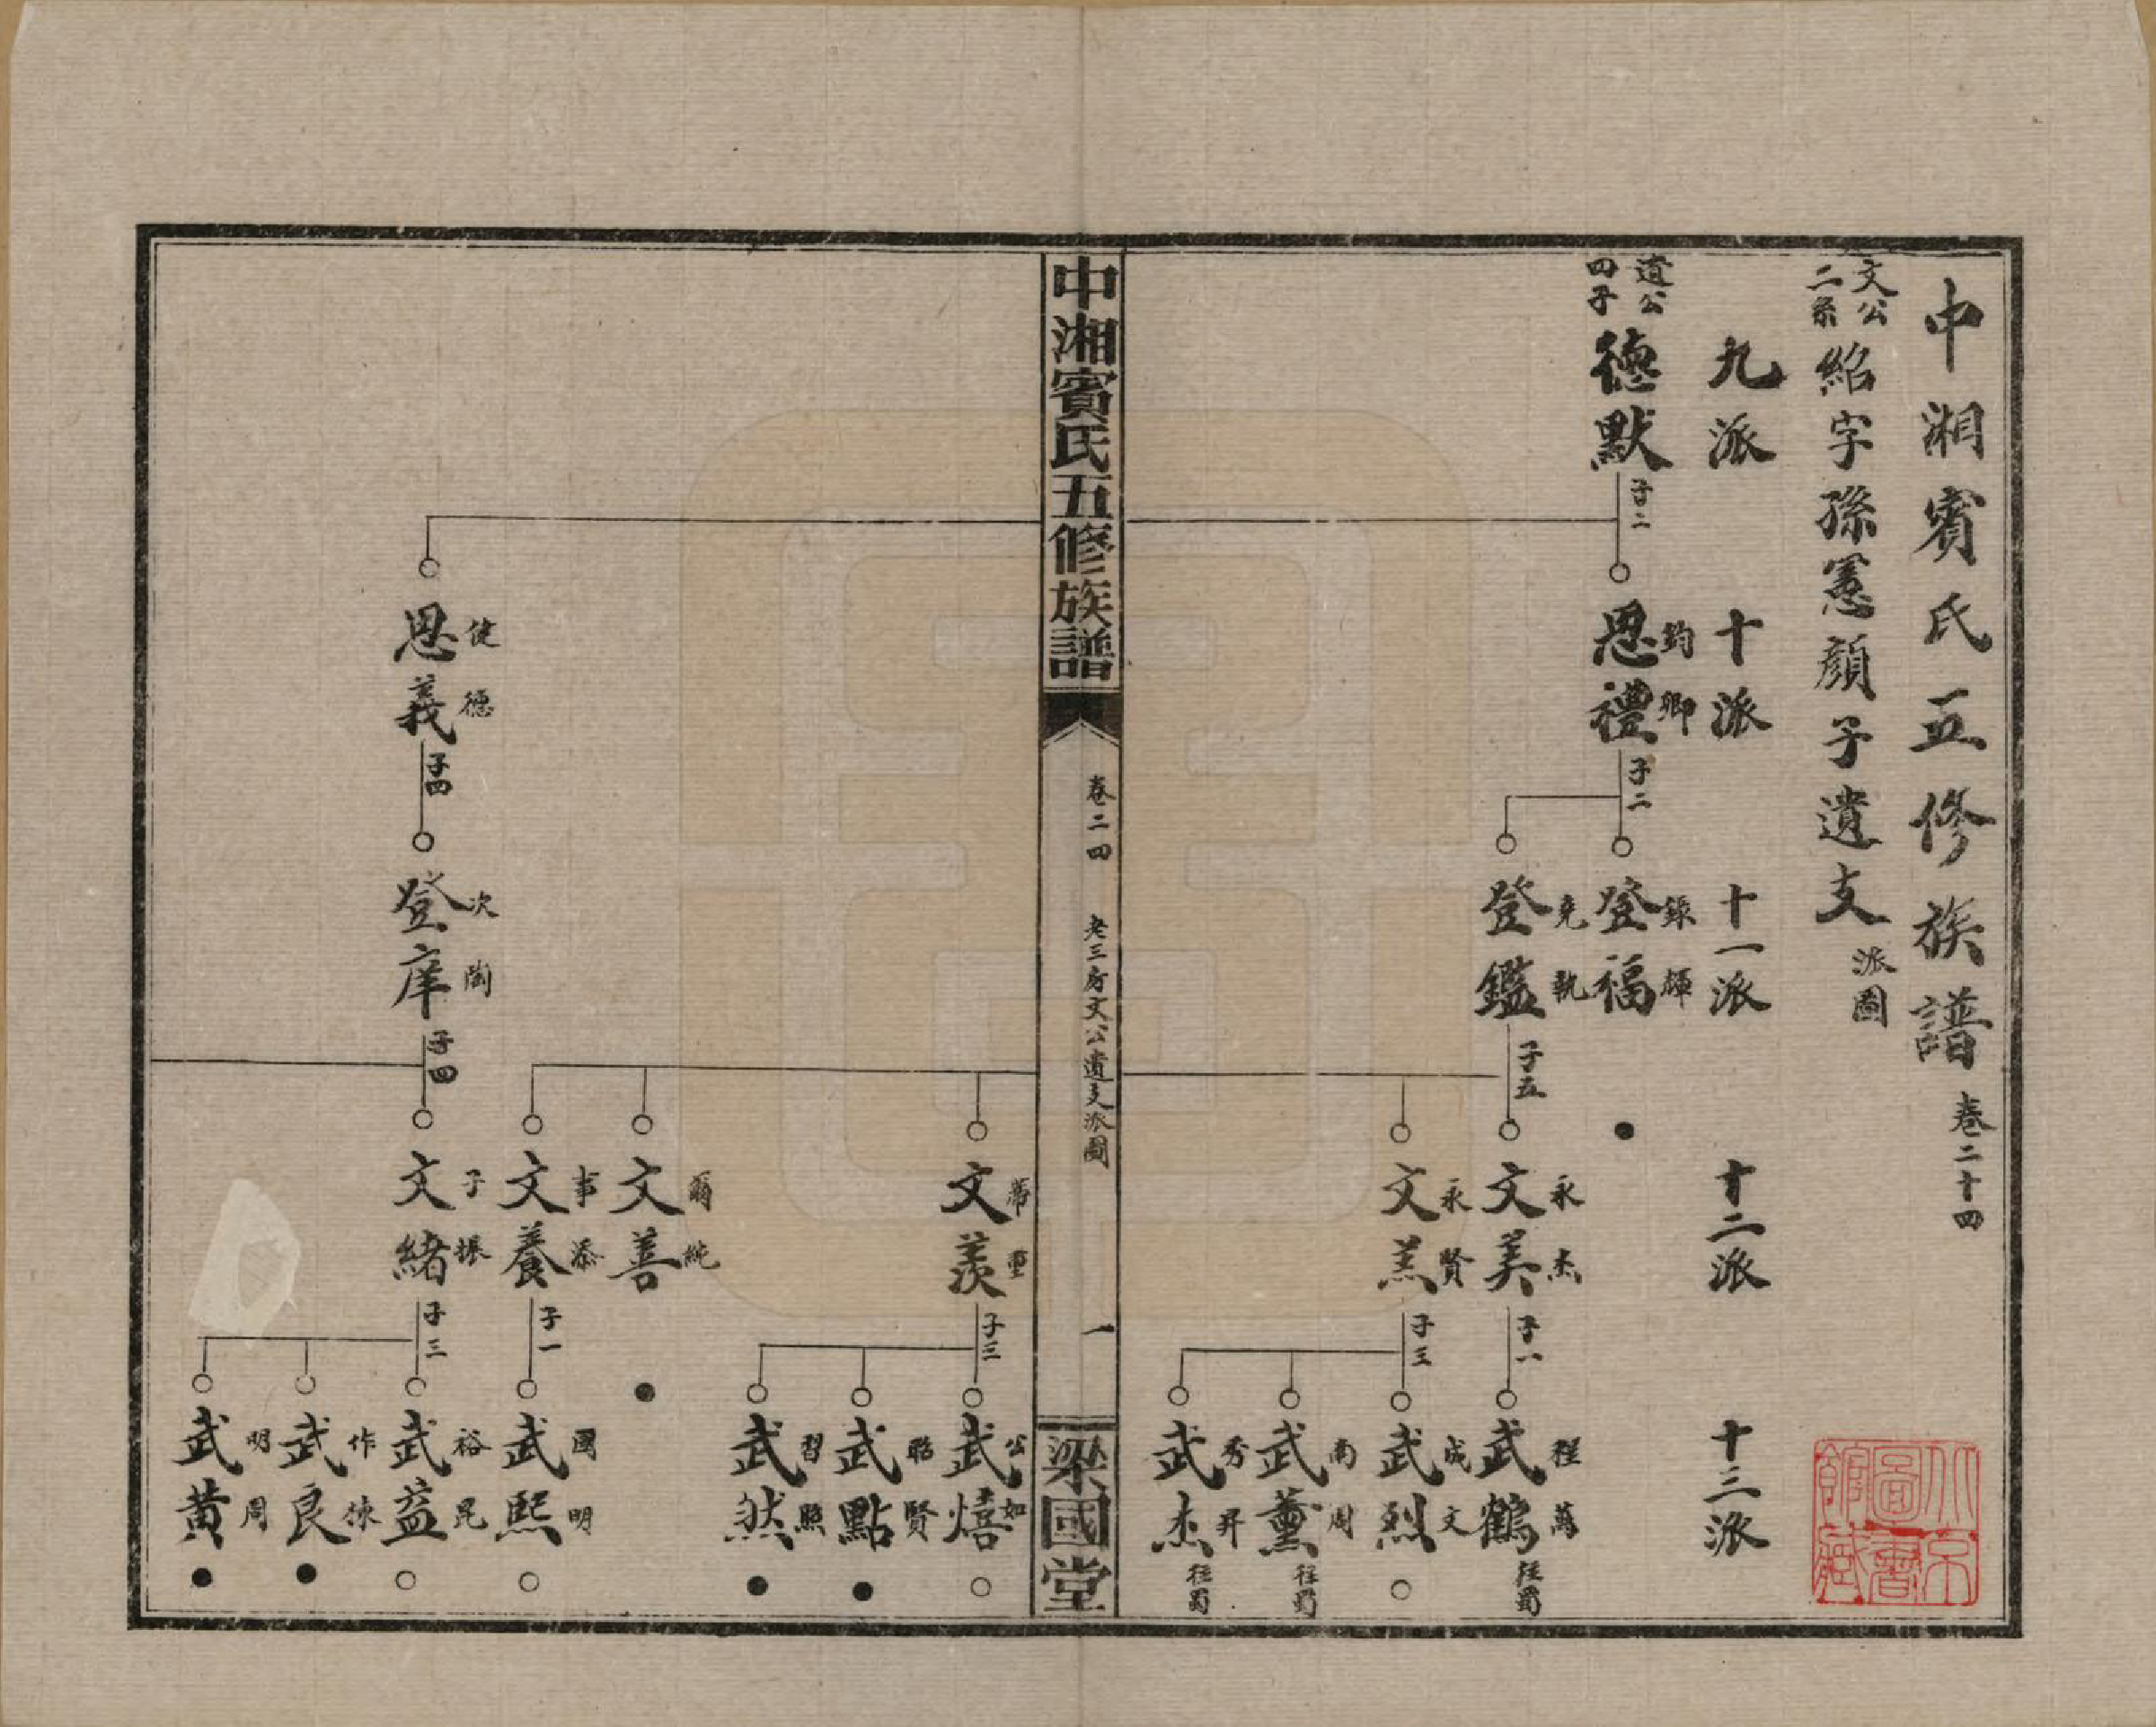 中湘賓氏五修族譜 卷二十四
文公二系 紹字孫憲顏子遺支 派圖
九派 十派 十一派 十二派 十三派
遺公四子 德默 子二
恩禮 鈞卿 子二
登福 錸輝 ●
登鑑 堯執 子五
文美 永杰 子一
武鶴 程萬 往蜀
文羔 永賢 子三
武烈 成文 ○
武薰 南周 往蜀
武杰 秀昇 往蜀
中湘賓氏五修族譜 卷二四 老三房文公遺支派圖 一 梁國堂
文羨 子三
武熺 公如 ○
武點 昭賢 ●
武然 習照 ●
文善 爾純 ●
文養 事添 子一
武熙 國明 ○
恩義 健德 子四
登庠 次陶 子四
文緒 子振 子三
武益 裕昆 ○
武良 作倈 ●
武黄 明周 ●
北京圖書館藏